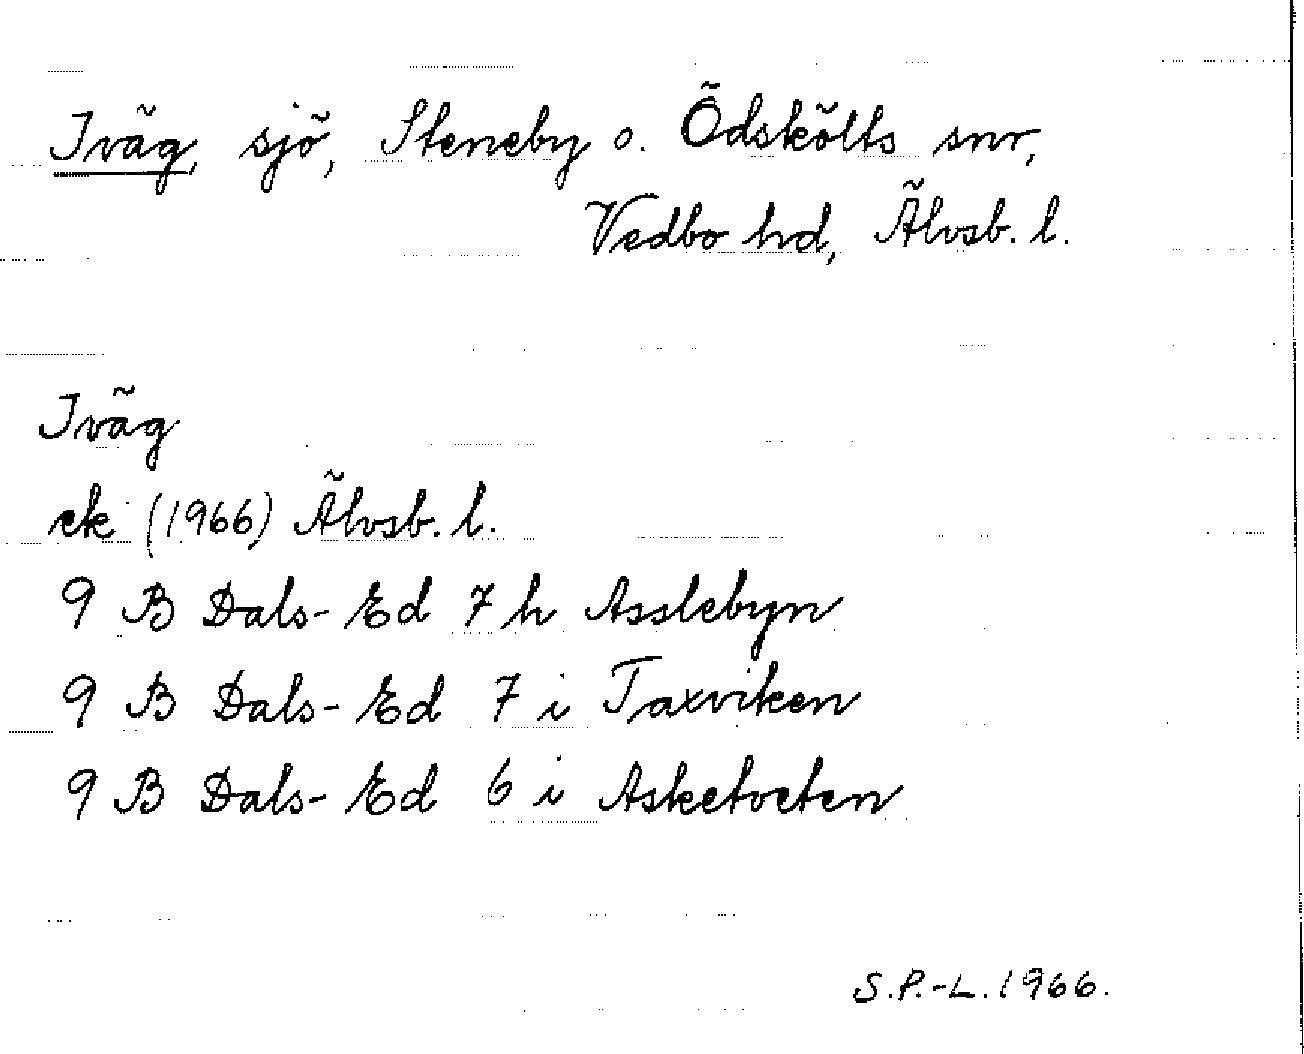 Iväg, sjö, Steneby o. Ödskölts snr,
Vedbo hd, Älvsb. l.
Iväg
ek (1966) Älvsb. l.
9 B Dals-Ed 7 h Asslebyn
9 B Dals-Ed 7 i Taxviken
9 B Dals-Ed 6 i Asketveten
S.P.-L. 1966.